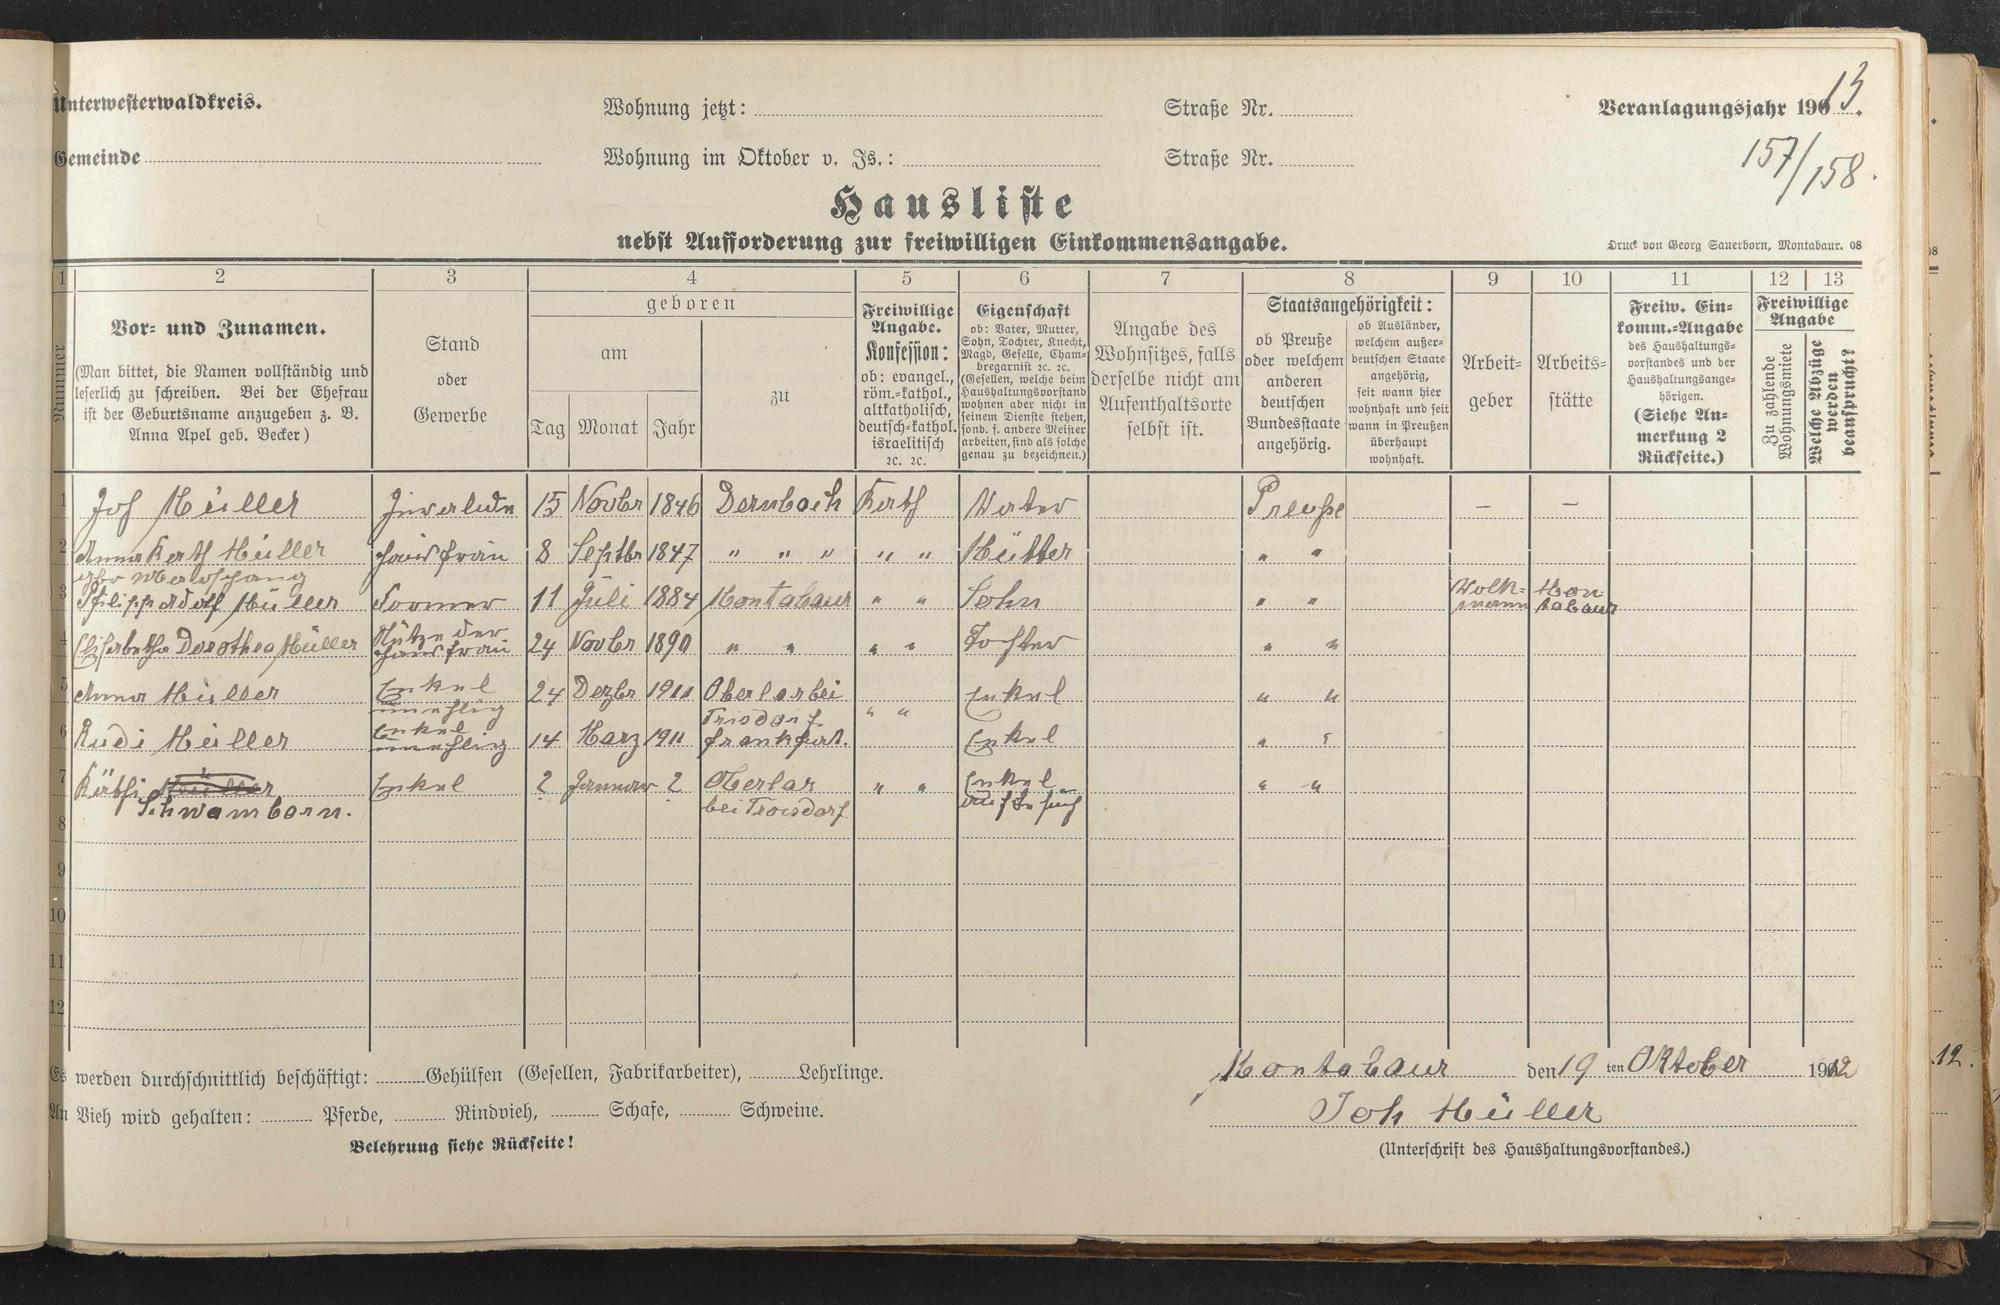 Unterwesterwaldkreis.
Wohnung jetzt: Straße Nr. Veranlagungsjahr 1913.
Gemeinde Wohnung im Oktober v. Js.: Straße Nr.
157/158.
Hausliste
nebst Aufforderung zur freiwilligen Einkommensangabe.
Druck von Georg Sauerborn, Montabaur. 08
1 2 3 4 5 6 7 8 9 10 11 12 13
Nummer
Vor- und Zunamen.
(Man bittet, die Namen vollständig und
leserlich zu schreiben. Bei der Ehefrau
ist der Geburtsname anzugeben z. B.
Anna Apel geb. Becker)
Stand
oder
Gewerbe
geboren
am
Tag Monat Jahr
zu
Freiwillige
Angabe.
Konfession:
ob: evangel.,
röm.-kathol.,
altkatholisch,
deutsch-kathol.
israelitisch
ꝛc. ꝛc.
Eigenschaft
ob: Vater, Mutter,
Sohn, Tochter, Knecht,
Magd, Geselle, Cham-
bregarnist ꝛc. ꝛc.
(Gesellen, welche beim
Haushaltungsvorstand
wohnen aber nicht in
seinem Dienste stehen,
sond. f. andere Meister
arbeiten, sind als solche
genau zu bezeichnen.)
Angabe des
Wohnsitzes, falls
derselbe nicht am
Aufenthaltsorte
selbst ist.
Staatsangehörigkeit:
ob Preuße
oder welchem
anderen
deutschen
Bundesstaate
angehörig.
ob Ausländer,
welchem außer-
deutschen Staate
angehörig,
seit wann hier
wohnhaft und seit
wann in Preußen
überhaupt
wohnhaft.
Arbeit-
geber
Arbeits-
stätte
Freiw. Ein-
komm.-Angabe
des Haushaltungs-
vorstandes und der
Haushaltungsange-
hörigen.
(Siehe An-
merkung 2
Rückseite.)
Freiwillige
Angabe
Zu zahlende
Wohnungsmiete
Welche Abzüge
werden
beansprucht?
1 Joh Müller Inwalide 15 Novbr 1846 Dernbach Kath Vater Preuße — —
2 Anna Kath Müller Hausfrau 8 Septbr 1847 " " " " " Mutter " "
gbr
3 Philipp Adolf Müller Former 11 Juli 1884 Montabaur " " Sohn " " Volk-
mann Mon
tabaur
4 Elisabetha Dorothea Müller Stütze der
Hausfrau 24 Novbr 1890 " " " " Tochter " "
5 Anna Müller Enkel
unehlig 24 Dezbr Oberlar bei
Troisdorf " " Enkel " "
6 Rudi Müller Enkel
unehlig 14 Marz 1911 Frankfurt. Enkel "
7 Käthi Müller
Schwamborn. Enkel 2 Januar 2 Oberlar
bei Troisdorf " " Enkel
auf Besuch " "
8
9
10
11
12
Es werden durchschnittlich beschäftigt: Gehülfen (Gesellen, Fabrikarbeiter), Lehrlinge.
An Vieh wird gehalten: Pferde, Rindvieh, Schafe, Schweine.
Belehrung siehe Rückseite!
Montabaur den 19 ten Oktober 1912
Joh Müller
(Unterschrift des Haushaltungsvorstandes.)
12.